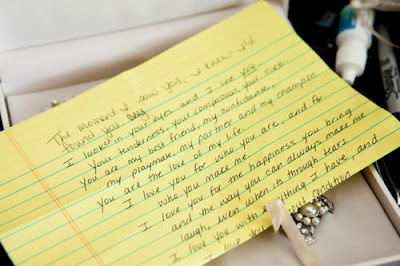 The moment I saw you, I knew I'd
found you
I looked in your eyes, and I see you
your tenderness, your compassion, your fire.
You are my best friend, my confidante,
my playmate, my partner and my champion.
You are the love of my life.
I love you for who you are, and for
who you make me.
I love you for the happiness you bring
and the way you can always make me
laugh, even when its through tears.
I love you with everything I have, and